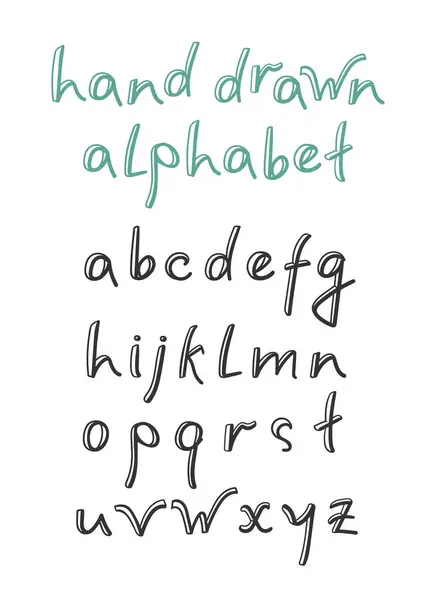 hand drawn
alphabet
abcdefg
hijklmn
opqrst
uvwxyz